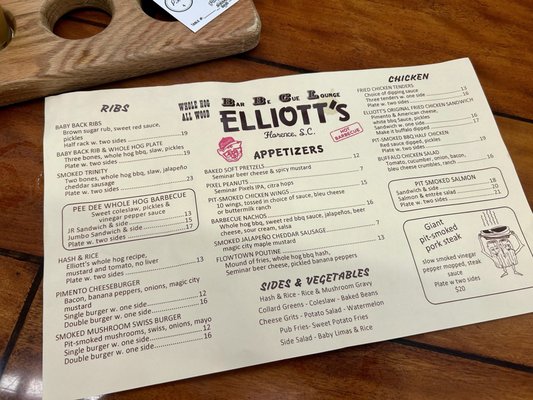 WHOLE HOG
ALL WOOD
Bar Be Cue Lounge
ELLIOTT'S
Florence, S.C.
HOT BARBECUE
RIBS
BABY BACK RIBS
Brown sugar rub, sweet red sauce,
pickles
Half rack w. two sides 19
BABY BACK RIB & WHOLE HOG PLATE
Three bones, whole hog bbq, slaw, pickles
Plate w. two sides 19
SMOKED TRINITY
Two bones, whole hog bbq, slaw, jalapeño
cheddar sausage
Plate w. two sides 23
PEE DEE WHOLE HOG BARBECUE
Sweet coleslaw, pickles &
vinegar pepper sauce
JR Sandwich & side 13
Jumbo Sandwich & side 15
Plate w. two sides 17
HASH & RICE
Elliott's whole hog recipe,
mustard and tomato, no liver
Plate w. two sides 13
PIMENTO CHEESEBURGER
Bacon, banana peppers, onions, magic city
mustard
Single burger w. one side 12
Double burger w. one side 16
SMOKED MUSHROOM SWISS BURGER
Pit-smoked mushrooms, swiss, onions, mayo
Single burger w. one side 12
Double burger w. one side 16
APPETIZERS
BAKED SOFT PRETZELS 12
Seminar beer cheese & spicy mustard
PIXEL PEANUTS 7
Seminar Pixels IPA, citra hops
PIT-SMOKED CHICKEN WINGS 15
10 wings, tossed in choice of sauce, bleu cheese
or buttermilk ranch
BARBECUE NACHOS 16
Whole hog bbq, sweet red bbq sauce, jalapeños, beer
cheese, sour cream, salsa
SMOKED JALAPEÑO CHEDDAR SAUSAGE 7
magic city mustard
FLOWTOWN POUTINE 13
Mound of fries, whole hog bbq hash,
Seminar beer cheese, pickled banana peppers
SIDES & VEGETABLES
Hash & Rice - Rice & Mushroom Gravy
Collard Greens - Coleslaw - Baked Beans
Cheese Grits - Potato Salad - Watermelon
Pub Fries- Sweet Potato Fries
Side Salad - Baby Limas & Rice
CHICKEN
FRIED CHICKEN TENDERS
Choice of dipping sauce
Three tenders w. one side 13
Plate w. two sides 16
ELLIOTT'S ORIGINAL FRIED CHICKEN SANDWICH
Pimento & American cheese,
white bbq Sauce, pickles
Sandwich w. one side 14
Make it buffalo dipped 17
PIT-SMOKED BBQ HALF CHICKEN
Red sauce dipped, pickles
Plate w. two sides 19
BUFFALO CHICKEN SALAD
Tomato, cucumber, onion, bacon,
bleu cheese crumbles, ranch 16
PIT SMOKED SALMON
Sandwich & side 20
Salmon & entrée salad 20
Plate w. two sides 21
Giant
pit-smoked
pork steak
slow smoked vinegar
pepper mopped, steak
sauce
Plate w two sides
$20